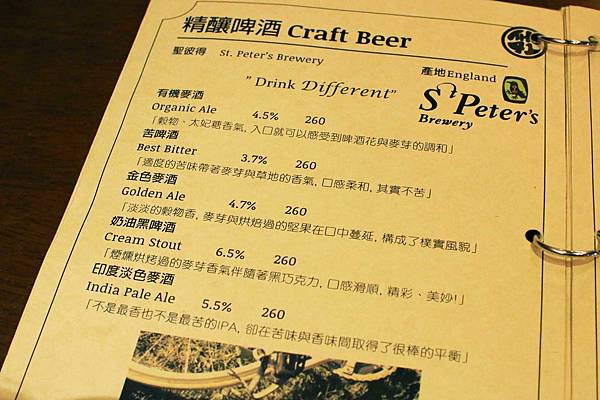 精釀啤酒 Craft Beer
聖彼得 St. Peter's Brewery
產地England
"Drink Different"
St Peter's
Brewery
有機麥酒
Organic Ale 4.5% 260
「穀物、太妃糖香氣, 入口就可以感受到啤酒花與麥芽的調和」
苦啤酒
Best Bitter 3.7% 260
「適度的苦味帶著麥芽與草地的香氣, 口感柔和, 其實不苦」
金色麥酒
Golden Ale 4.7% 260
「淡淡的穀物香, 麥芽與烘焙過的堅果在口中蔓延, 構成了樸實風貌」
奶油黑啤酒
Cream Stout 6.5% 260
「煙燻烘烤過的麥芽香氣伴隨著黑巧克力, 口感滑順, 精彩、美妙!」
印度淡色麥酒
India Pale Ale 5.5% 260
「不是最香也不是最苦的IPA, 卻在苦味與香味間取得了很棒的平衡」